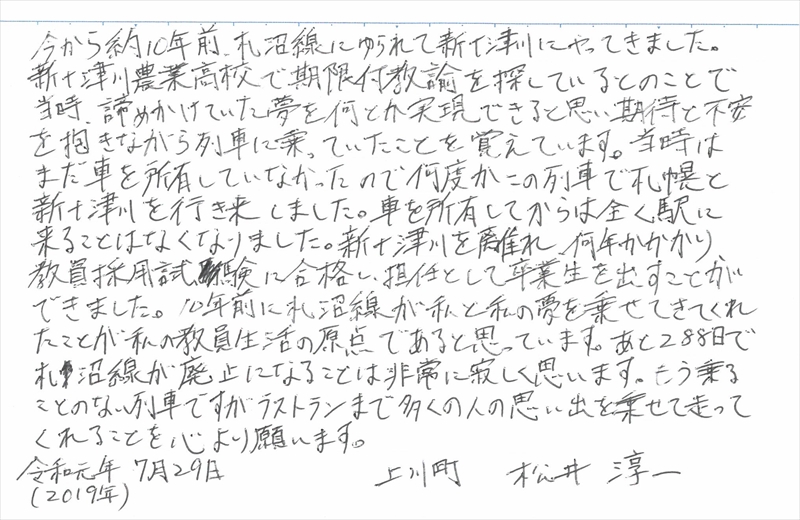 今から約10年前、札沼線にゆられて新十津川にやってきました。
新十津川農業高校で期限付教諭を探しているとのことで
当時、諦めかけていた夢を何とか実現できると思い期待と不安
を抱きながら列車に乗っていたことを覚えています。当時は
まだ車を所有していなかったので何度かこの列車で札幌と
新十津川を行き来しました。車を所有してからは全く駅に
来ることはなくなりました。新十津川を離れ、何年かかかり、
教員採用試験に合格し、担任として卒業生を出すことが
できました。10年前に札沼線が私と私の夢を乗せてきてくれ
たことが私の教員生活の原点であると思っています。あと288日で
札沼線が廃止になることは非常に寂しく思います。もう乗る
ことのない列車ですがラストランまで多くの人の思い出を乗せて走って
くれることを心より願います。
令和元年 7月29日 上川町 松井 淳一
(2019年)